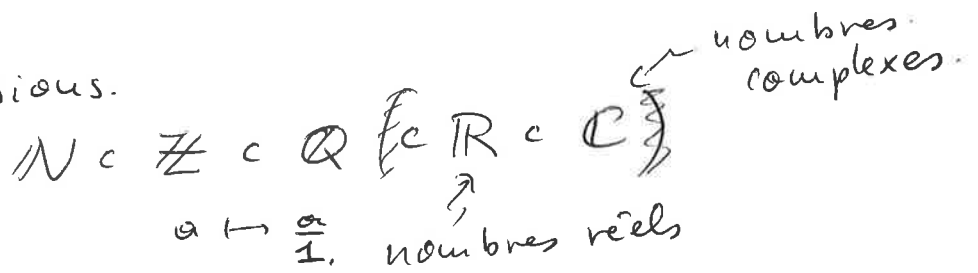 nombres
complexes.
sions.
ℕ ⊂ ℤ ⊂ ℚ (⊂ ℝ ⊂ ℂ)
a ↦ a/1. nombres réels